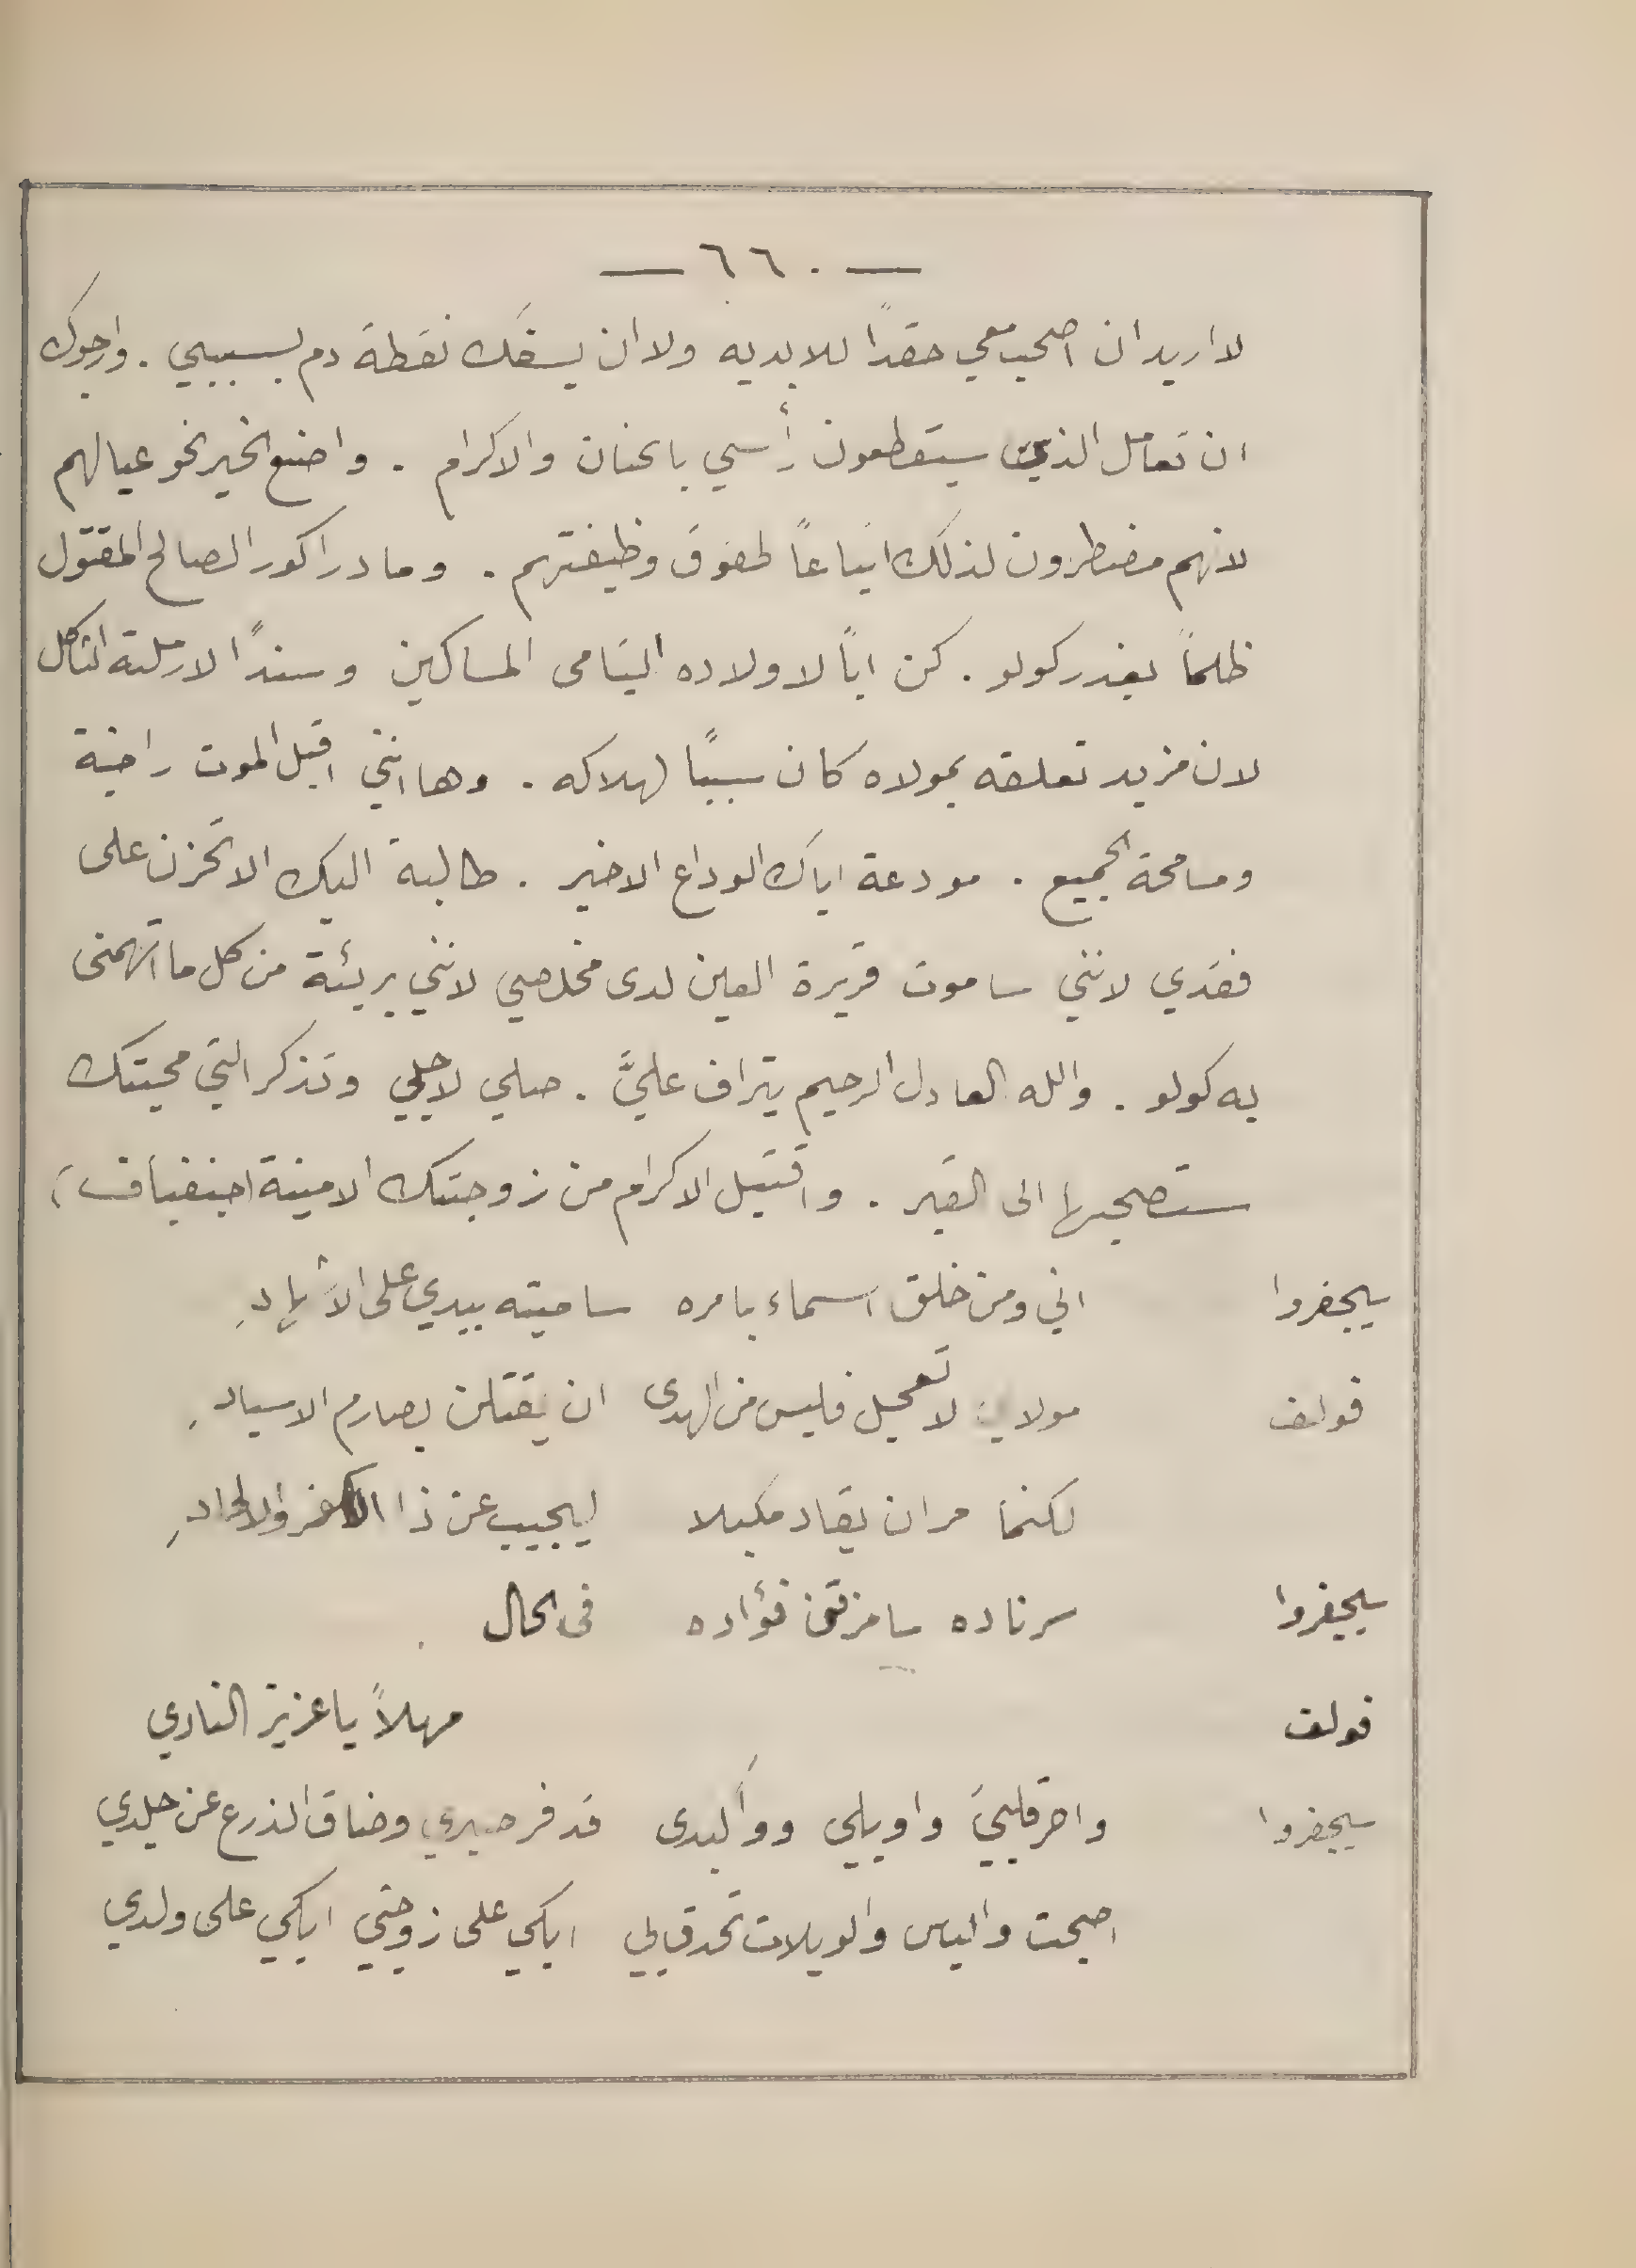 — ٦٦٠ —
لا اريد ان اصحب معي حقدًا للابديه ولا ان يسفك نقطة دم بسببي . وارجوك
ان تعامل الذين سيقطعون رأسي بالحنان والاكرام . واصنع الخير نحو عيالهم
لانهم مضطرون لذلك اتباعًا لحقوق وظيفتهم . وما دراكور الصالح المقتول
ظلمًا بغدر كولو . كن ابًا لاولاده اليتامى المساكين وسندًا لارملته الثاكل
لان مزيد تعلقه بمولاه كان سببًا لهلاكه . وها انني اقبل الموت راضية
ومسامحة الجميع . مودعة اياك الوداع الاخير . طالبة اليك الا تحزن على
فقدي لانني ساموت قريرة العين لدى مخلصي لانني بريئة من كل ما اتهمني
به كولو . والله العادل الرحيم يتراف عليَّ . صلي لاجلي وتذكر التي محبتك
ستصحبها الى القبر . واقتبل الاكرام من زوجتك الامينة اجنفياف )
سيجفروا اني ومن خلق السماء بامره ساميته بيدي على
قولف مولاي لا تعجل فليس من الهدى ان يقتلن بصارم الاسياد
لكنما مر ان يقاد مكبلا ليجيب عن ذا الكفر والالحاد
سيجفروا سر ناده سامزقن فؤاده في الحال
قولف مهلاً يا عزيز النادي
سيجفروا واحر قلبيَ واويلي وواكبدى قد فر صبري وضاق الذرع عن جلدي
اصبحت والياس والويلات تحدق بي ابكي على زوجتي ابكي على ولدي